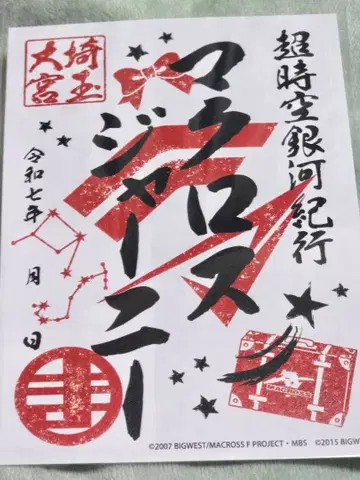 超時空銀河紀行
マクロス
ジャーニー
埼玉
大宮
令和七年 月 日
MACROSS
©2007 BIGWEST/MACROSS F PROJECT・MBS ©2015 BIGW